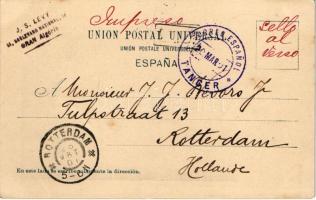 Impreso
J. S. LEVY
ORAN
UNION POSTAL UNIVERSAL
UNION POSTALE UNIVERSELLE
ESPAÑA
ESPAÑOL
MAR
TANGER
Sello
al
verso
A Monsieur J. J.
Tulpstraat 13
Rotterdam
Hollande
ROTTERDAM
En este lado se escribe solamente la dirección.